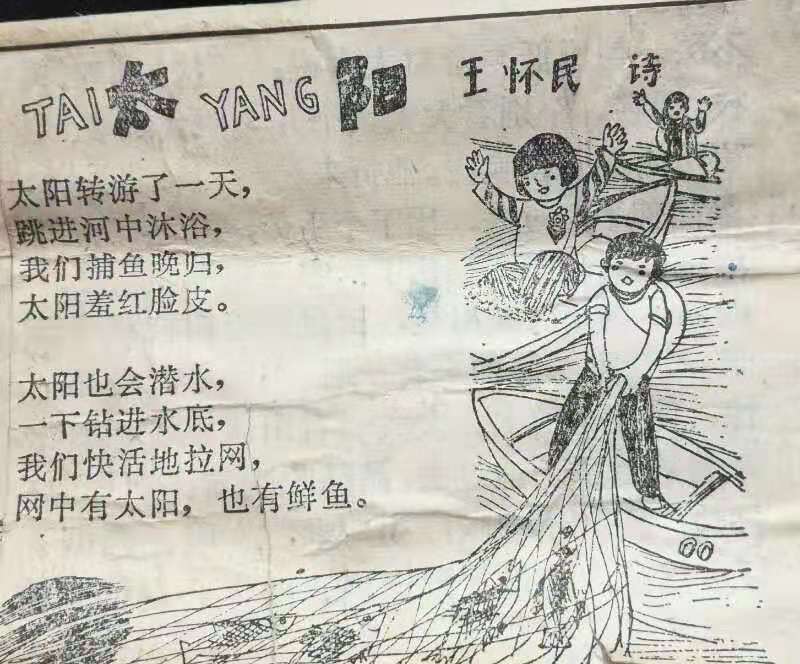 TAI太 YANG 阳 王怀民 诗
太阳转游了一天,
跳进河中沐浴,
我们捕鱼晚归,
太阳羞红脸皮。
太阳也会潜水,
一下钻进水底,
我们快活地拉网,
网中有太阳,也有鲜鱼。